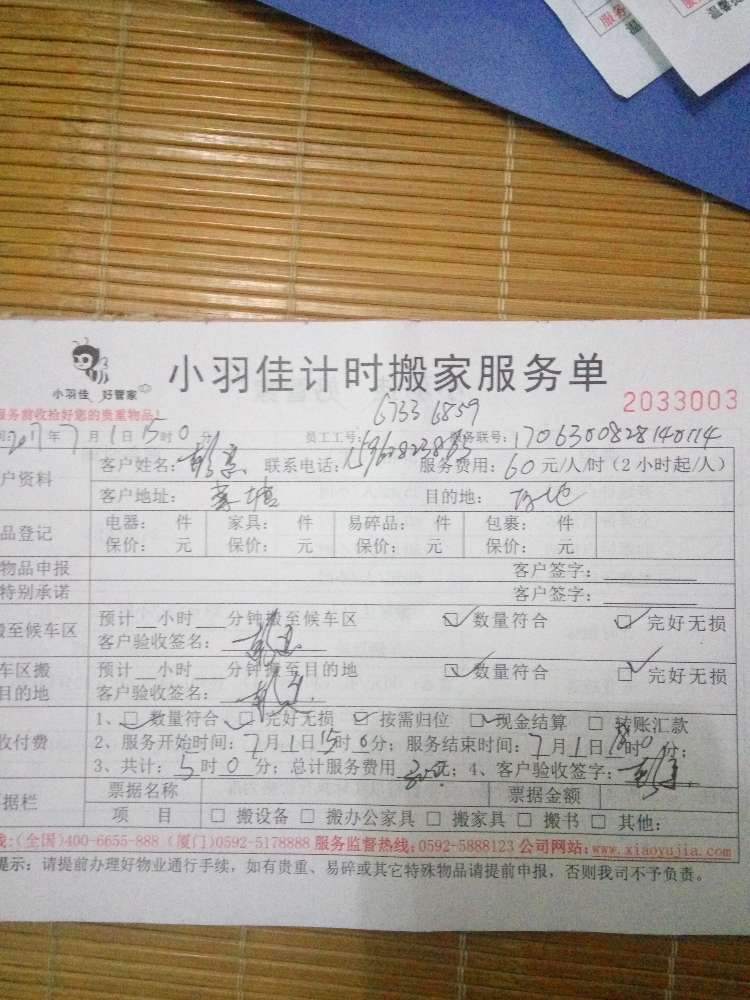 服务
小羽佳 好管家
小羽佳计时搬家服务单
2033003
服务前收拾好您的贵重物品!
6733 6859
2017年7月1日15时0分 员工工号: 服务联号:
户资料 客户姓名: 联系电话: 服务费用:60元/人/时(2小时起/人)
客户地址: 目的地:
品登记 电器: 件 家具: 件 易碎品: 件 包裹: 件
保价: 元 保价: 元 保价: 元 保价: 元
物品申报 客户签字:
特别承诺 客户签字:
搬至候车区 预计__小时__分钟搬至候车区 ☑数量符合 ☑完好无损
客户验收签名:
车区搬 预计__小时__分钟搬至目的地 ☑数量符合 ☑完好无损
目的地 客户验收签名:
收付费 1、☑数量符合 ☑完好无损 ☑按需归位 ☑现金结算 ☐转账汇款
2、服务开始时间:7月1日15时0分;服务结束时间:7月1日 时0分;
3、共计:5时0分;总计服务费用 元;4、客户验收签字:
据栏 票据名称 票据金额
项 目 ☐搬设备 ☐搬办公家具 ☐搬家具 ☐搬书 ☐其他:
线:(全国)400-6655-888 (厦门)0592-5178888 服务监督热线:0592-5888123 公司网站:www.xiaoyujia.com
提示:请提前办理好物业通行手续,如有贵重、易碎或其它特殊物品请提前申报,否则我司不予负责。